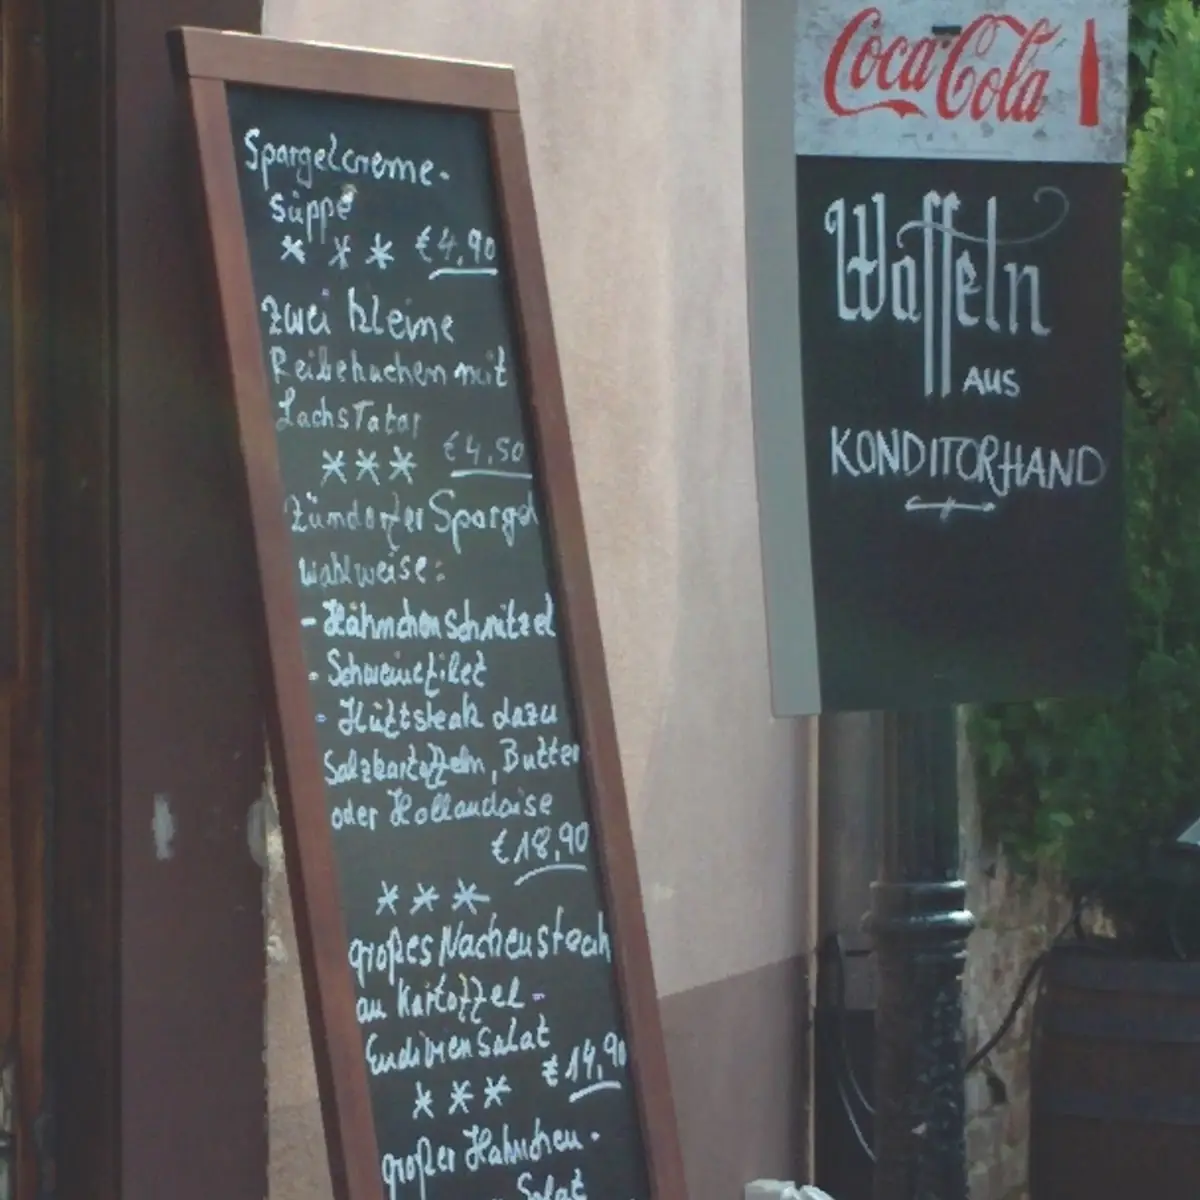 Spargelcreme-
süppe
* * * €4,90
Zwei kleine
Reibekuchen mit
LachsTatar
*** €4,50
Zündorfer Spargel
wahlweise:
- Hähnchenschnitzel
- Schweinefilet
- Hüftsteak dazu
Salzkartoffeln, Butter
oder Hollandaise
€18,90
***
großes Nackensteak
an Kartoffel-
Endivien Salat
€14,90
***
großer Hähnchen-
Salat
Coca-Cola
Waffeln
AUS
KONDITORHAND